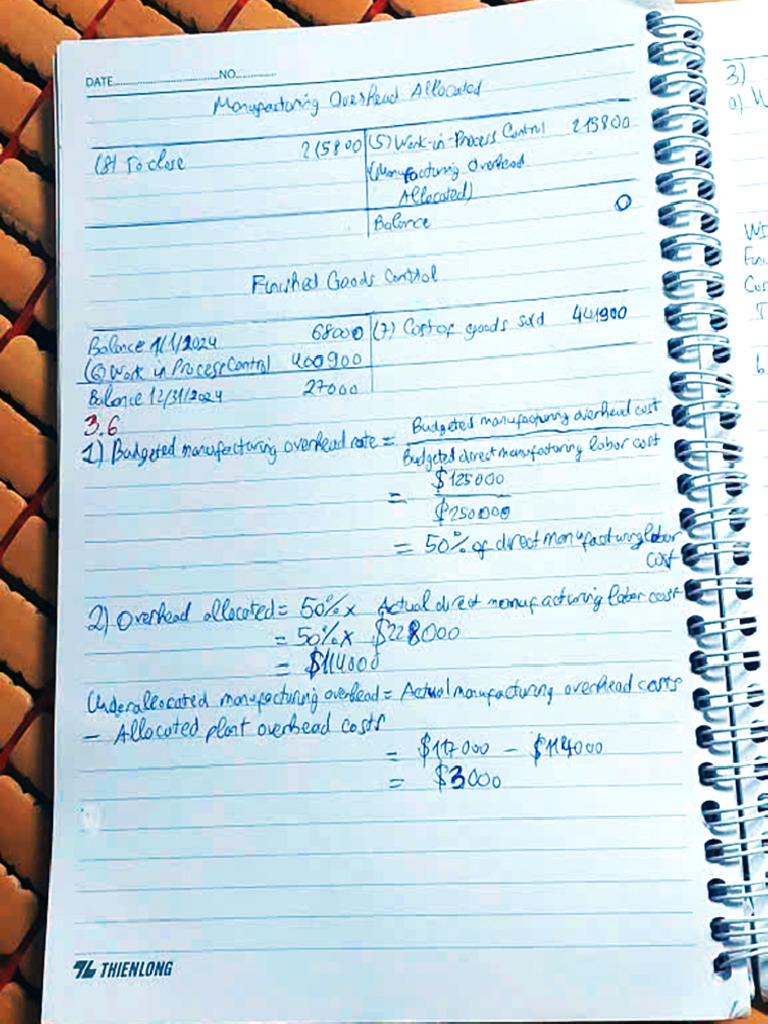 DATE..............................NO.............
Manufacturing Overhead Allocated
(8) To close 215800 (5) Work-in-Process Control 215800
(Manufacturing Overhead
Allocated)
Balance 0
Finished Goods Control
Balance 1/1/2024 68000 (7) Cost of goods sold 441900
(6) Work in Process Control 400900
Balance 12/31/2024 27000
3.6
1) Budgeted manufacturing overhead rate = Budgeted manufacturing overhead cost
Budgeted direct manufacturing labor cost
= $125000
$250000
= 50% of direct manufacturing labor
cost
2) Overhead allocated = 50% x Actual direct manufacturing labor cost
= 50% x $228000
= $114000
Underallocated manufacturing overhead = Actual manufacturing overhead costs
- Allocated plant overhead costs
= $117000 - $114000
= $3000
THIENLONG
3)
a)